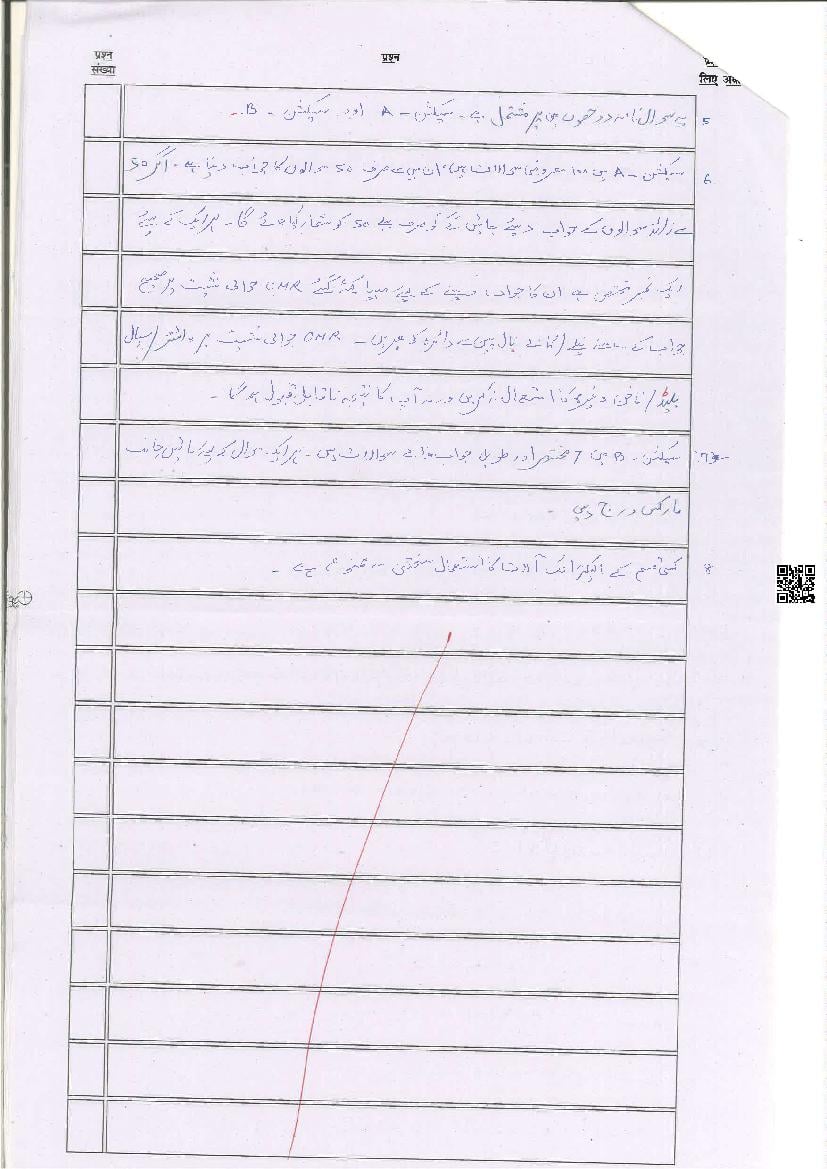 प्रश्न संख्या
प्रश्न
लिए अंक
5 یہ سوال نامہ دو حصوں میں پر مشتمل ہے ۔ سیکشن - A اور سیکشن - B ۔
6 سیکشن - A میں 100 معروضی سوالات ہیں، ان میں سے صرف 50 سوالوں کا جواب دینا ہے ۔ اگر 50
سے زائد سوالوں کے جواب دیئے جائیں گے تو صرف پہلے 50 کو شمار کیا جائے گا ۔ ہر ایک کے لیے
ایک نمبر مختص ہے ان کا جواب دینے کے لیے مہیا کئے گئے OMR جوابی شیٹ پر صحیح
جواب کے سامنے نیلے / کالے بال پین سے دائرہ کو بھریں ۔ OMR جوابی شیٹ پر وائٹنر / سیال
بلیڈ / ناخن وغیرہ کا استعمال نہ کریں ورنہ آپ کا نتیجہ ناقابل قبول ہوگا ۔
7 سیکشن - B میں 7 مختصر اور طویل جواب والے سوالات ہیں ۔ ہر ایک سوال کے لیے بائیں جانب
مارکس درج ہیں ۔
8 کسی قسم کے الیکٹرانک آلات کا استعمال سختی سے ممنوع ہے ۔